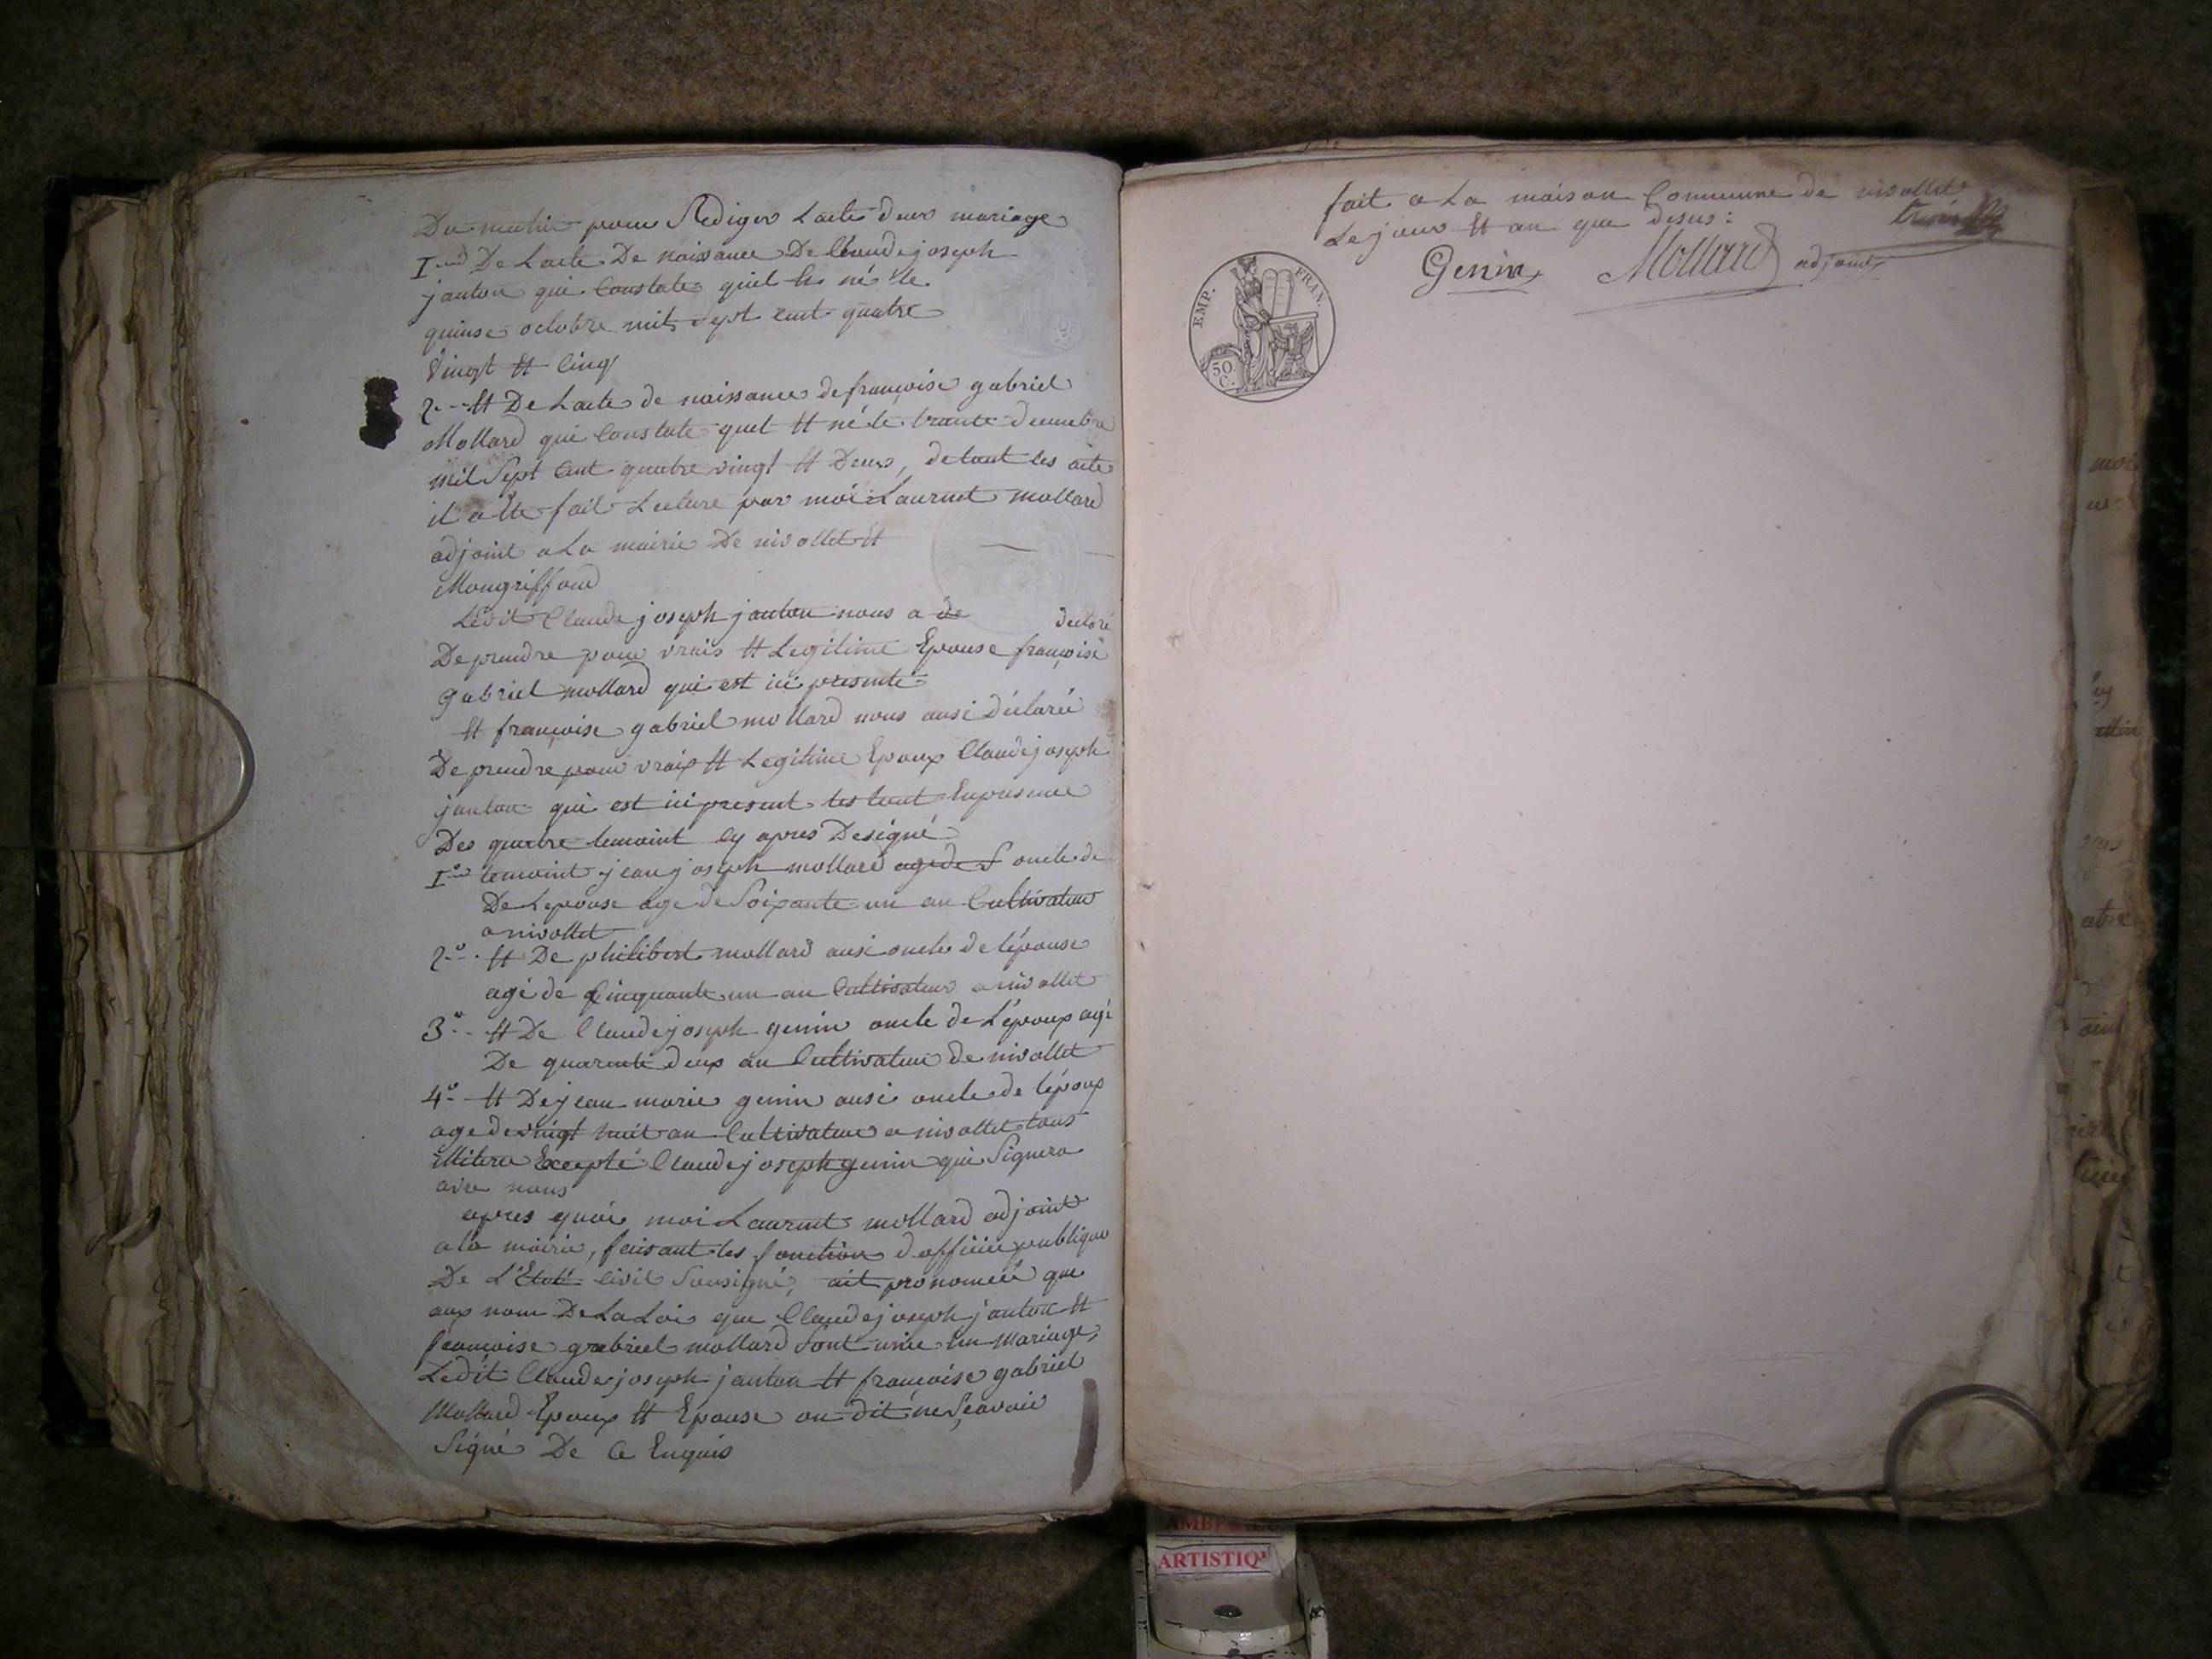 Du matin pour Rediger Lacte deur mariage
1 De Lacte De naissance De Claude joseph
janton qui Constate quil Et né le
quinse octobre mil Sept cent quatre
Vingt Et Cinq
2 Et De Lacte de naissance de françoise gabriel
Mollard qui Constate quel Et né le trante decembre
mil Sept Cent quatre vingt Et Deux, de tout les acte
il a Ete fait Lecture par moi Laurent mollard
adjoint a La mairie De nivollet Et
Mongriffond
Ledit Claude joseph janton nous a de declaré
De prendre pour vrais Et Legitime Epouse françoise
gabriel mollard qui est ici presente
Et françoise gabriel mollard nous ausi déclarée
De prendre pour vraix Et Legitime Epoux Claude joseph
janton qui est ici present les tout En presence
Des quatre temoint cy apres Designé
1 temoint jean joseph mollard age de S oncle de
De Lepouse age de Soixante un an Cultivateur
a nivollet
2° Et De philibert mollard ausi oncle de lépouse
agé de Cinquante un an Cultivateur a nivollet
3° Et De Claude joseph genin oncle de L'époux agé
De quarente deux an Cultivateur de nivollet
4° Et De jean marie genin ausi oncle de lépoux
age de vingt huit an Cultivateur a nivollet tous
illitere Excepté Claude joseph genin qui Signera
avec nous
apres quoi moi Laurent mollard adjoint
a la mairie, faisant les fonction d officier publique
De L'Etat Civil Sousigné, ait prononceé que
aux nom De La Loi que Claude joseph janton Et
francoise gabriel mollard Sont unie En Mariage,
Ledit Claude joseph janton Et françoise gabriel
Mollard Epoux Et Epouse on dit ne Sçavoir
Signé De Ce Enquis
fait a La maison Commune de nivollet
Le jour Et an que desus:
Genin Mollard adjoint
EMP. FRAN.
50
C.
ARTISTIQ